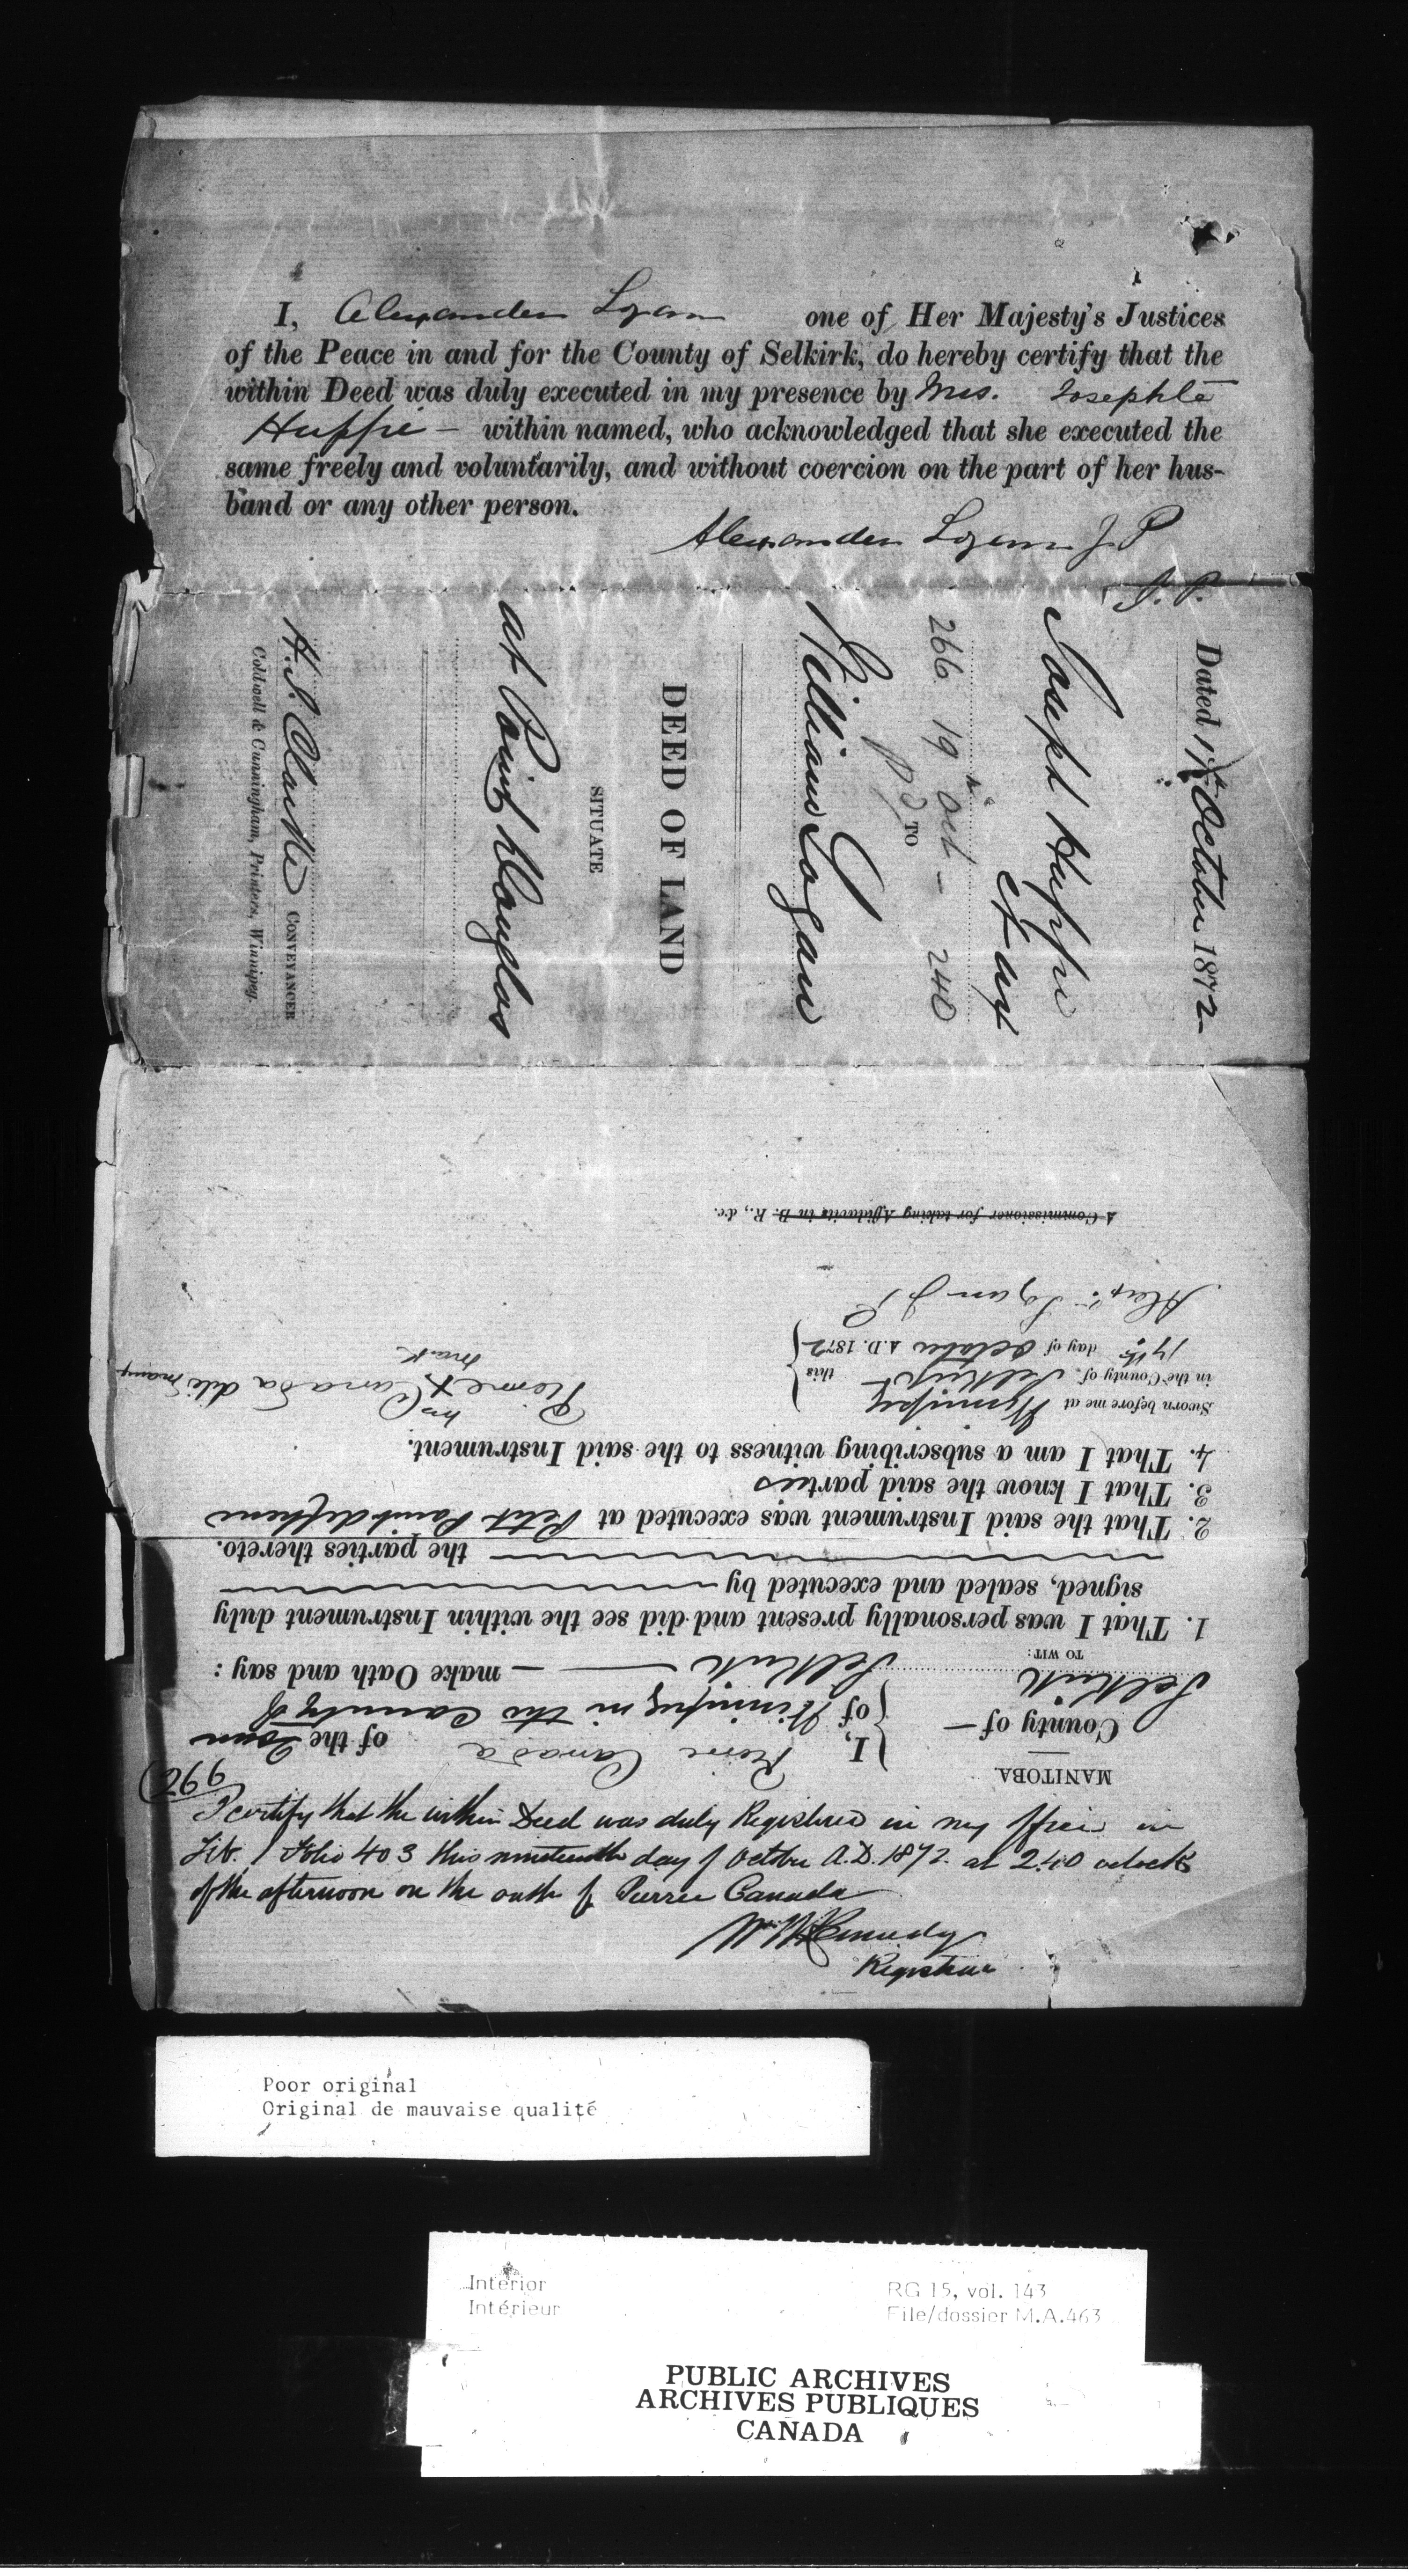 I, Alexander Logan one of Her Majesty's Justices
of the Peace in and for the County of Selkirk, do hereby certify that the
within Deed was duly executed in my presence by Mrs. Josephte
Huppé – within named, who acknowledged that she executed the
same freely and voluntarily, and without coercion on the part of her hus-
band or any other person.
Alexander Logan J P
J. P.
Dated 17th October 1872
Joseph Huppé
et ux
266. 19th Oct – 240
TO
William Logan
DEED OF LAND
SITUATE
at Point Douglas
CONVEYANCER
Coldwell & Cunningham, Printers, Winnipeg.
MANITOBA
County of –
Selkirk
TO WIT:
I, Pierre Canada of the Town
of Winnipeg in the County of
Selkirk — make Oath and say:
1. That I was personally present and did see the within Instrument duly
signed, sealed and executed by
the parties thereto.
2. That the said Instrument was executed at Petit
3. That I know the said parties
4. That I am a subscribing witness to the said Instrument.
Sworn before me at Winnipeg
in the County of Selkirk this
17th day of October A.D. 1872
Alexr. Logan J P
Pierre X Canada dit
his
mark
A Commissioner for taking Affidavits in B. R., &c.
266
I certify that the within Deed was duly Registered in my Office in
Lib. 1 Folio 403 this nineteenth day of October A.D. 1872 at 2.40 oclock
of the afternoon on the oath of Pierre Canada
Wm Kennedy
Registrar
Poor original
Original de mauvaise qualité
Interior
Intérieur
RG 15, vol. 143
File/dossier M.A.463
PUBLIC ARCHIVES
ARCHIVES PUBLIQUES
CANADA